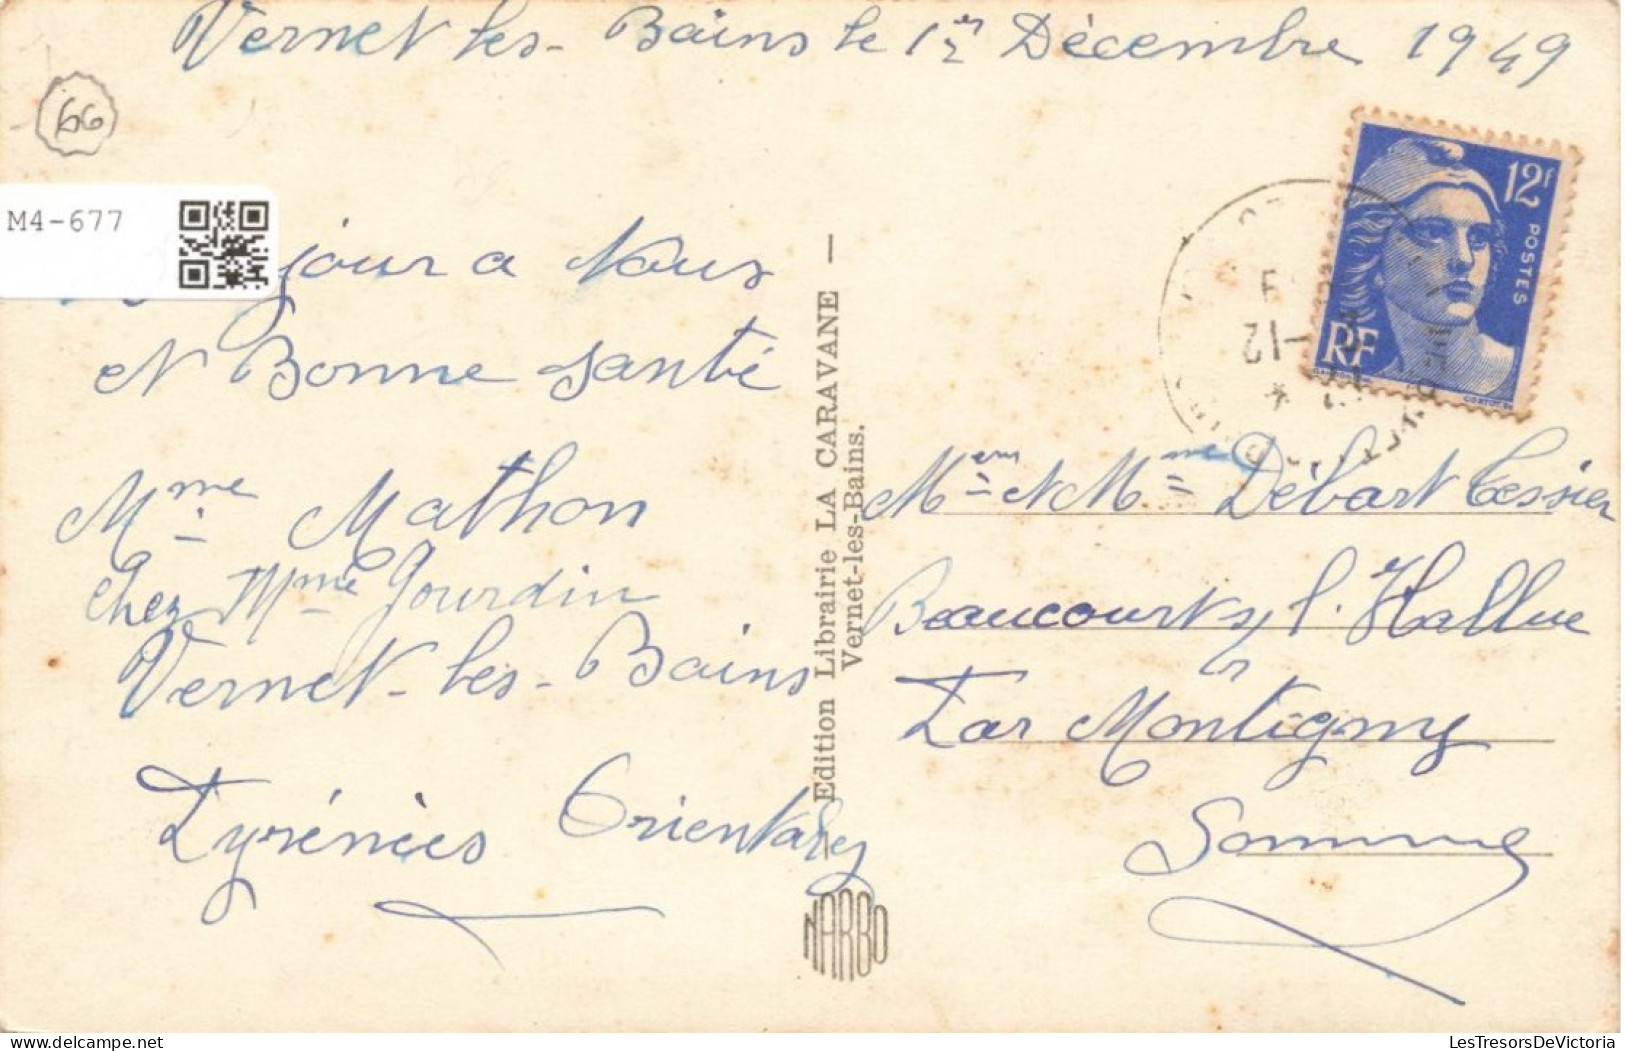 Vernet les-Bains le 1er Décembre 1949
66
M4-677
jour a Vous
et Bonne santé
Mme Mathon
chez Mme Gourdin
Vernet-les-Bains
Pyrénées Orientales
Edition Librairie LA CARAVANE —
Vernet-les-Bains.
NARBO
12f
POSTES
RF
-12
Mr et Mme Débart Tessier
Beaucourt s/ l'Hallue
Par Montigny
Somme
LesTresorsDeVictoria